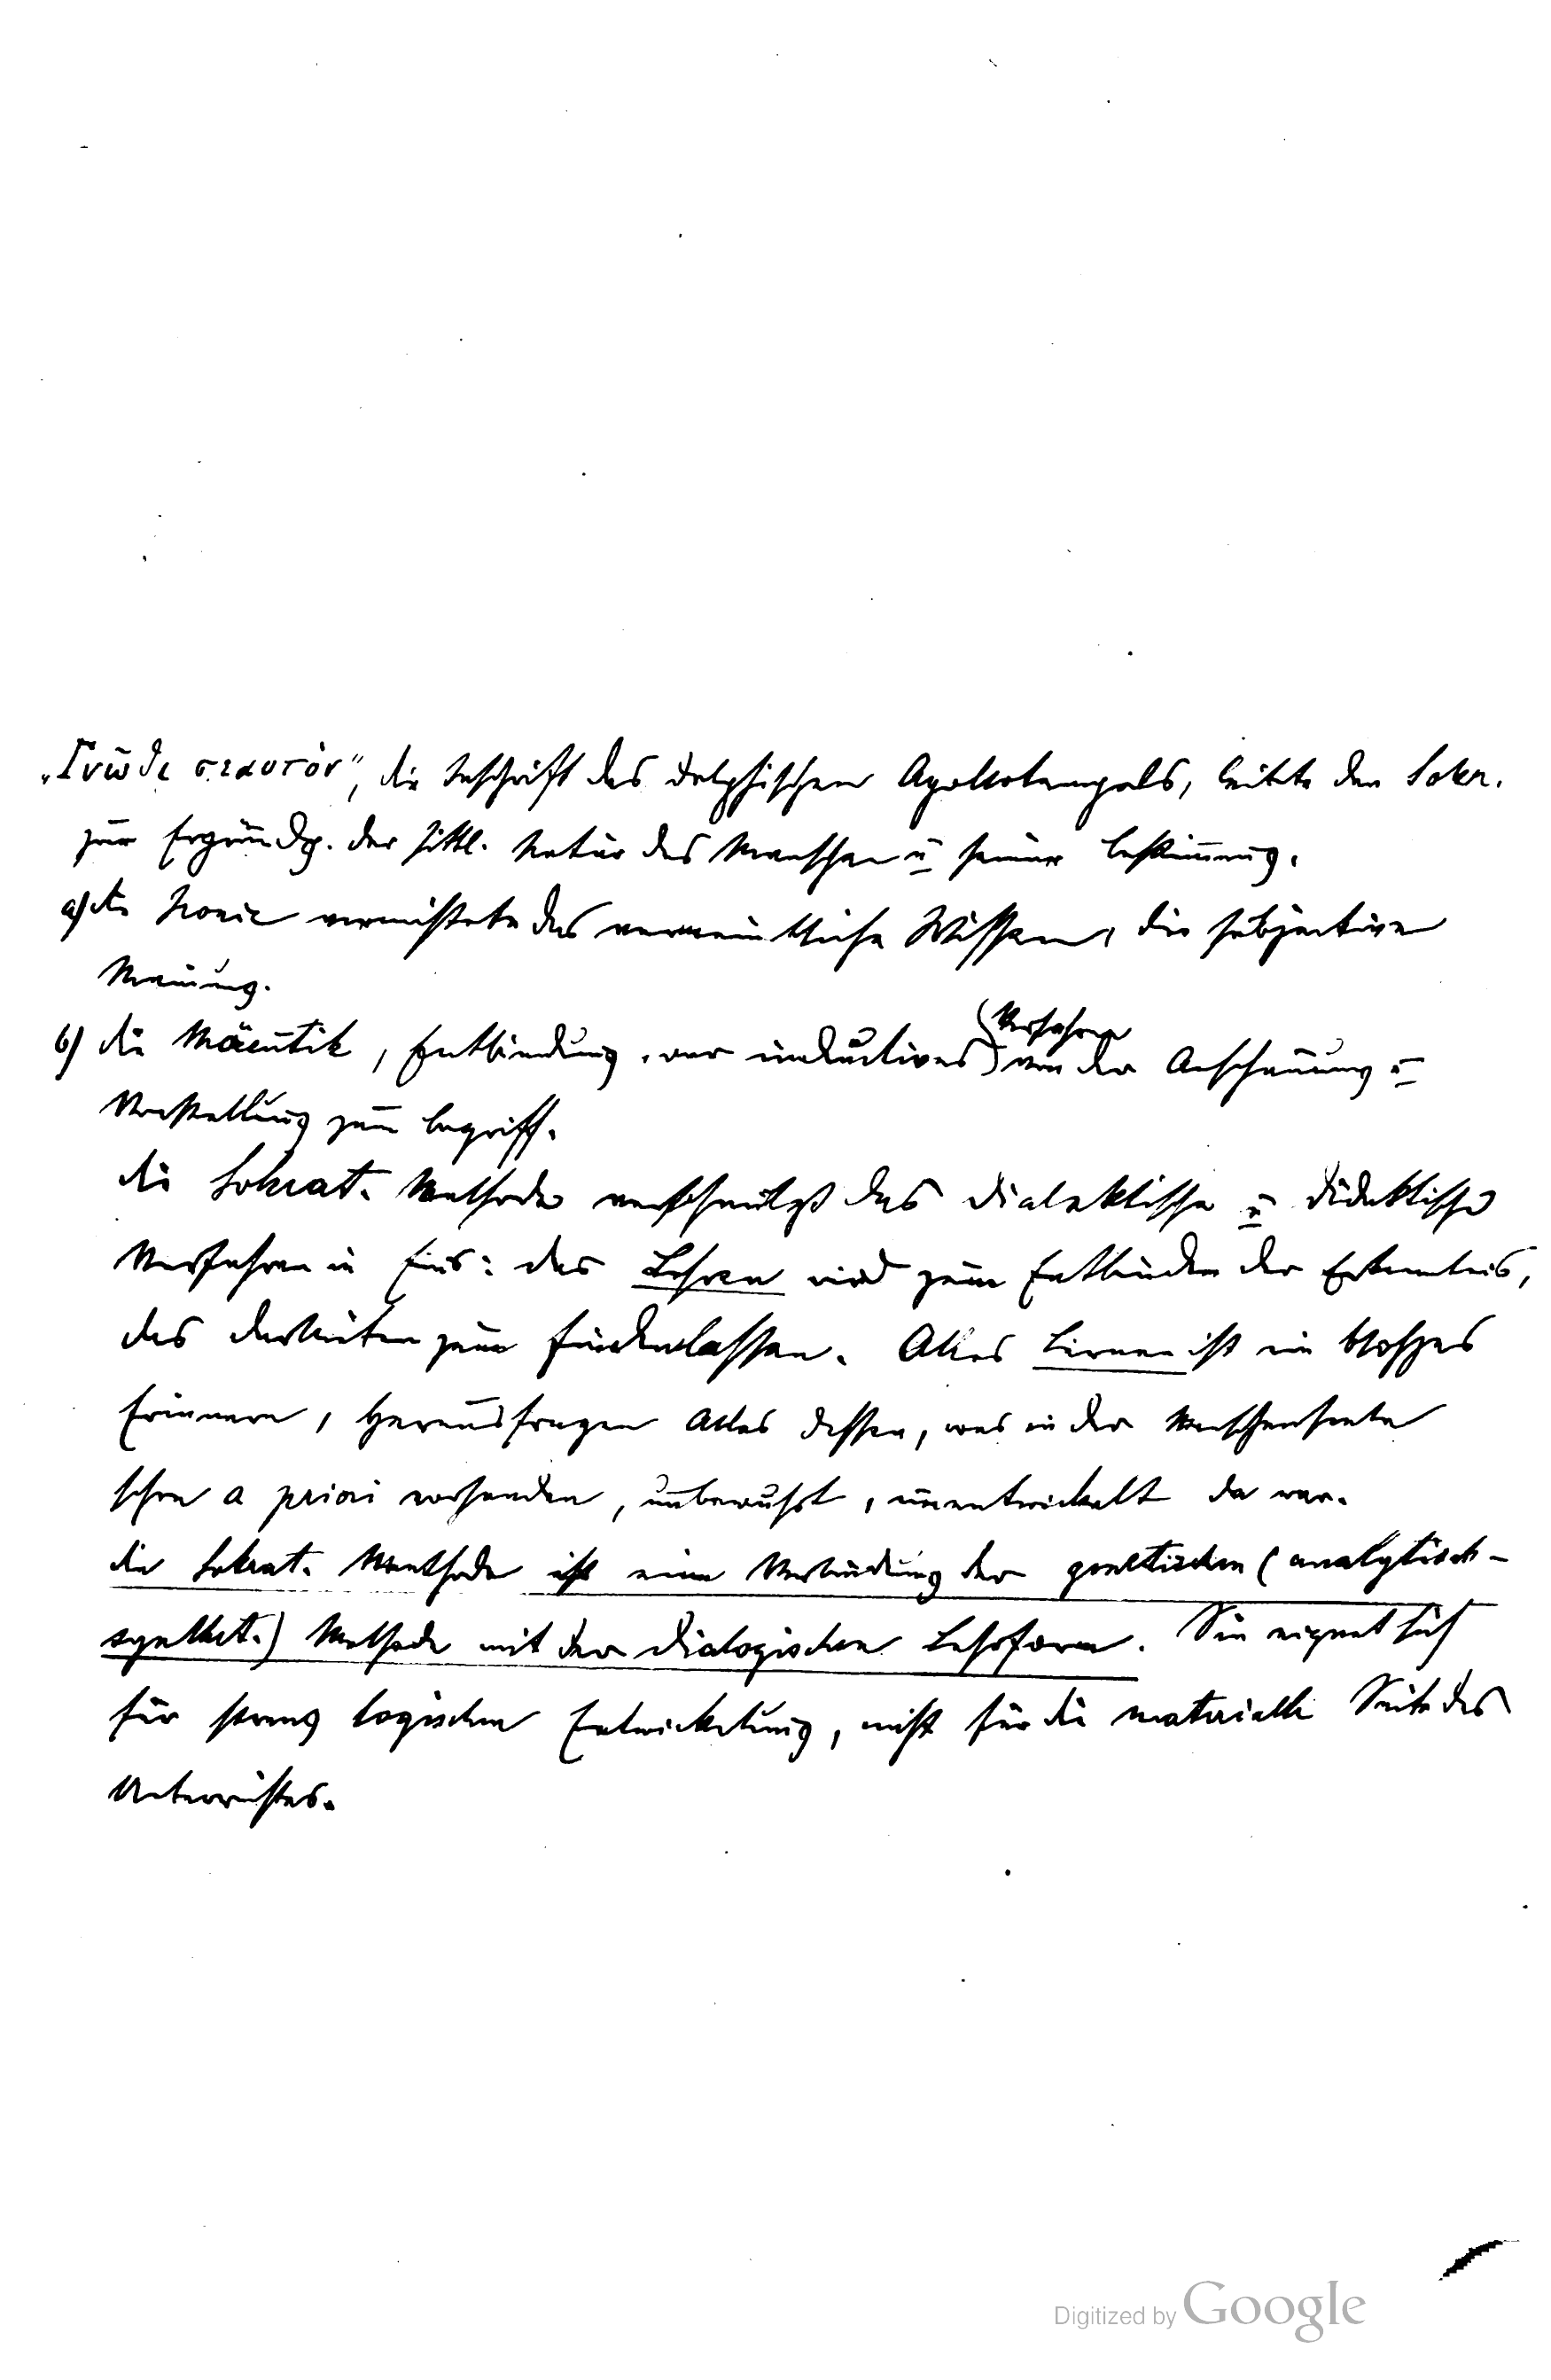 „Γνῶθι σεαυτόν“, die Inschrift des delphischen Apollotempels, leitete den Sokr.
zur Ergründg. der sittl. Natur des Menschen u seiner Bestimmung.
a) die Ironie vernichtete das vermeintliche Wissen, die subjective
Meinung.
b) die Mäeutik, Entbindung, war inductives (Verfahren) von der Anschauung u
Vorstellung zum Begriff.
die Sokrat. Methode verschmilzt das dialektische u didaktische
Verfahren in Eins: das Lehren wird zum Entbinden der Erkenntnis,
das Darbieten zum Findenlassen. Alles Lernen ist ein bloßes
Erinnern, Herausfragen Alles dessen, was in der Menschenseele
schon a priori vorhanden, unbewußt, unentwickelt da war.
die Sokrat. Methode ist eine Verbindung der genetischen (analytisch-
synthet.) Methode mit der dialogischen Lehrform. Sie eignet sich
für streng logischen Entwickelung, nicht für die materielle Seite des
Unterrichtes.
Digitized by Google